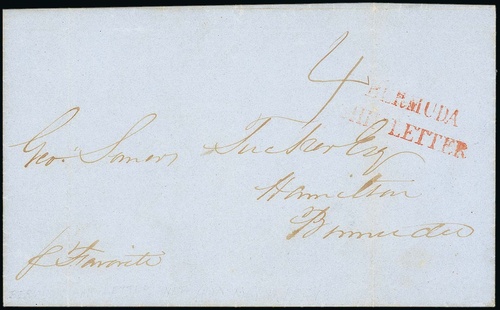 4
BERMUDA
SHIP LETTER
Geo. Somers Tucker Esq
Hamilton
Bermuda
p Favorite